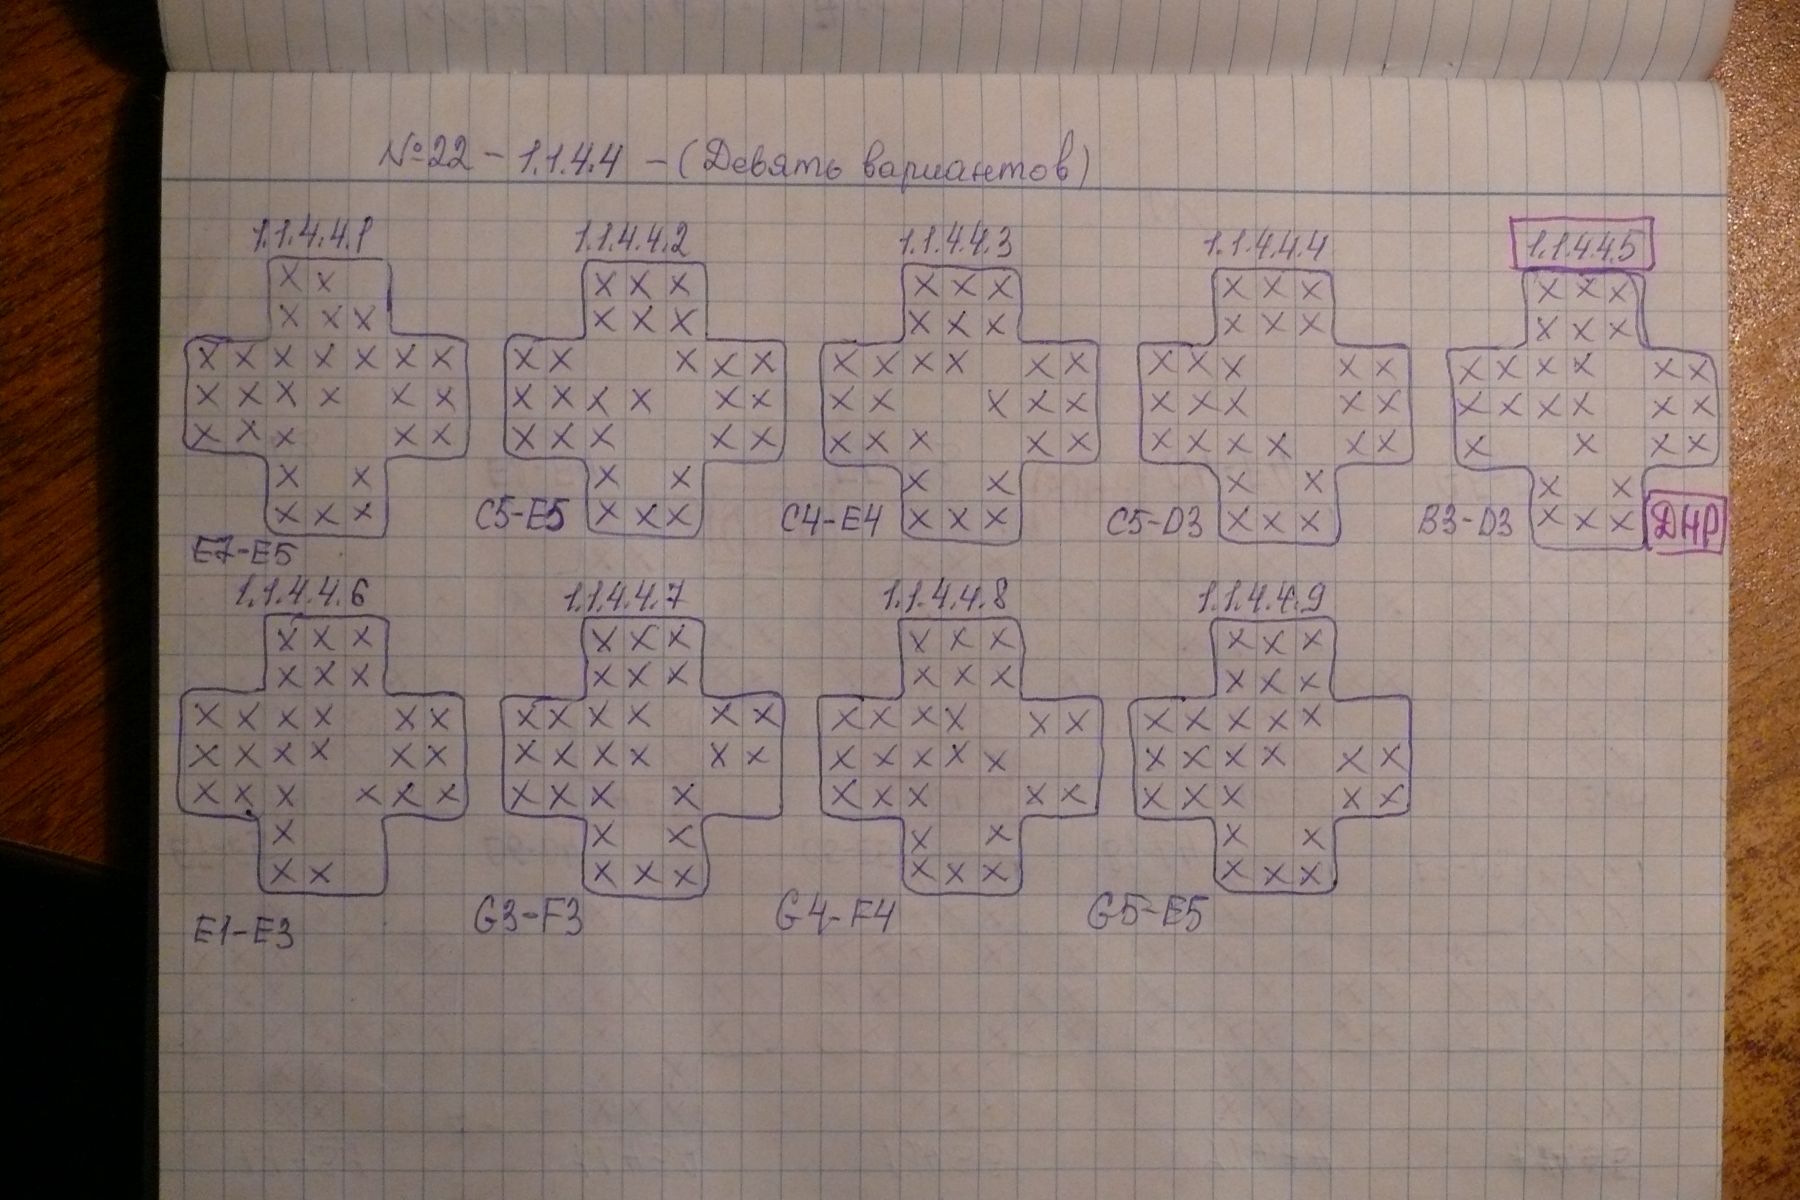 №22 - 1.1.4.4 - (Девять вариантов)
1.1.4.4.1 1.1.4.4.2 1.1.4.4.3 1.1.4.4.4 1.1.4.4.5
x x x x x x x x x x x x x x
x x x x x x x x x x x x x x x
x x x x x x x x x x x x x x x x x x x x x x x x x x x x x x x x
x x x x x x x x x x x x x x x x x x x x x x x x x x x x
x x x x x x x x x x x x x x x x x x x x x x x x x
x x x x x x x x x x
x x x x x x x x x x x x x x x
E7-E5 C5-E5 C4-E4 C5-D3 B3-D3 ДНР
1.1.4.4.6 1.1.4.4.7 1.1.4.4.8 1.1.4.4.9
x x x x x x x x x x x x
x x x x x x x x x x x x
x x x x x x x x x x x x x x x x x x x x x x x
x x x x x x x x x x x x x x x x x x x x x x x
x x x x x x x x x x x x x x x x x x x x
x x x x x x x
x x x x x x x x x x x
E1-E3 G3-F3 G4-F4 G5-E5